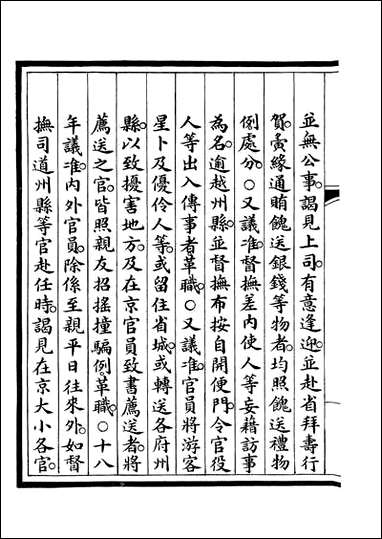 並無公事。謁見上司。有意逢迎。並赴省拜壽行
賀。夤緣通賄。餽送銀錢等物者。均照餽送禮物
例處分。○又議准。督撫差內使人等。妄藉訪事
為名。逾越州縣。並督撫布按。自開便門。令官役
人等出入傳事者革職。○又議准。官員將游客
星卜及優伶人等。或留住省城。或轉送各府州
縣。以致擾害地方。及在京官員致書薦送者。將
薦送之官。皆照親友招搖撞騙例。革職。○十八
年議准。內外官員。除係至親平日往來外。如督
撫司道州縣等官赴任時。謁見在京大小各官。